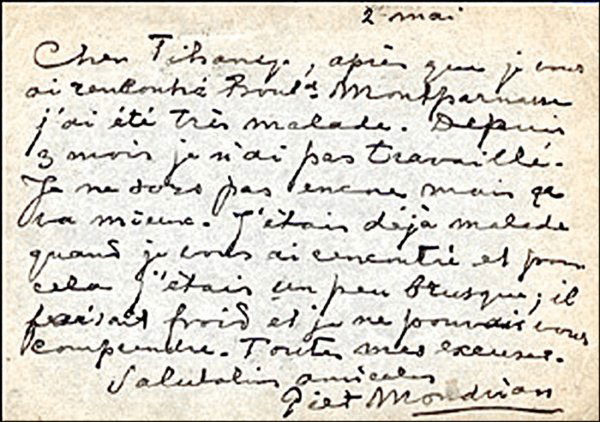 2 mai
Cher Tihanyi, après que je vous
ai rencontré Boul.d Montparnasse
j'ai été très malade. Depuis
3 mois je n'ai pas travaillé.
Je ne sors pas encore mais ça
va mieux. J'étais déjà malade
quand je vous ai rencontré et pour
cela j'étais un peu brusque; il
faisait froid et je ne pouvais vous
comprendre. Toutes mes excuses.
Salutations amicales
Piet Mondrian